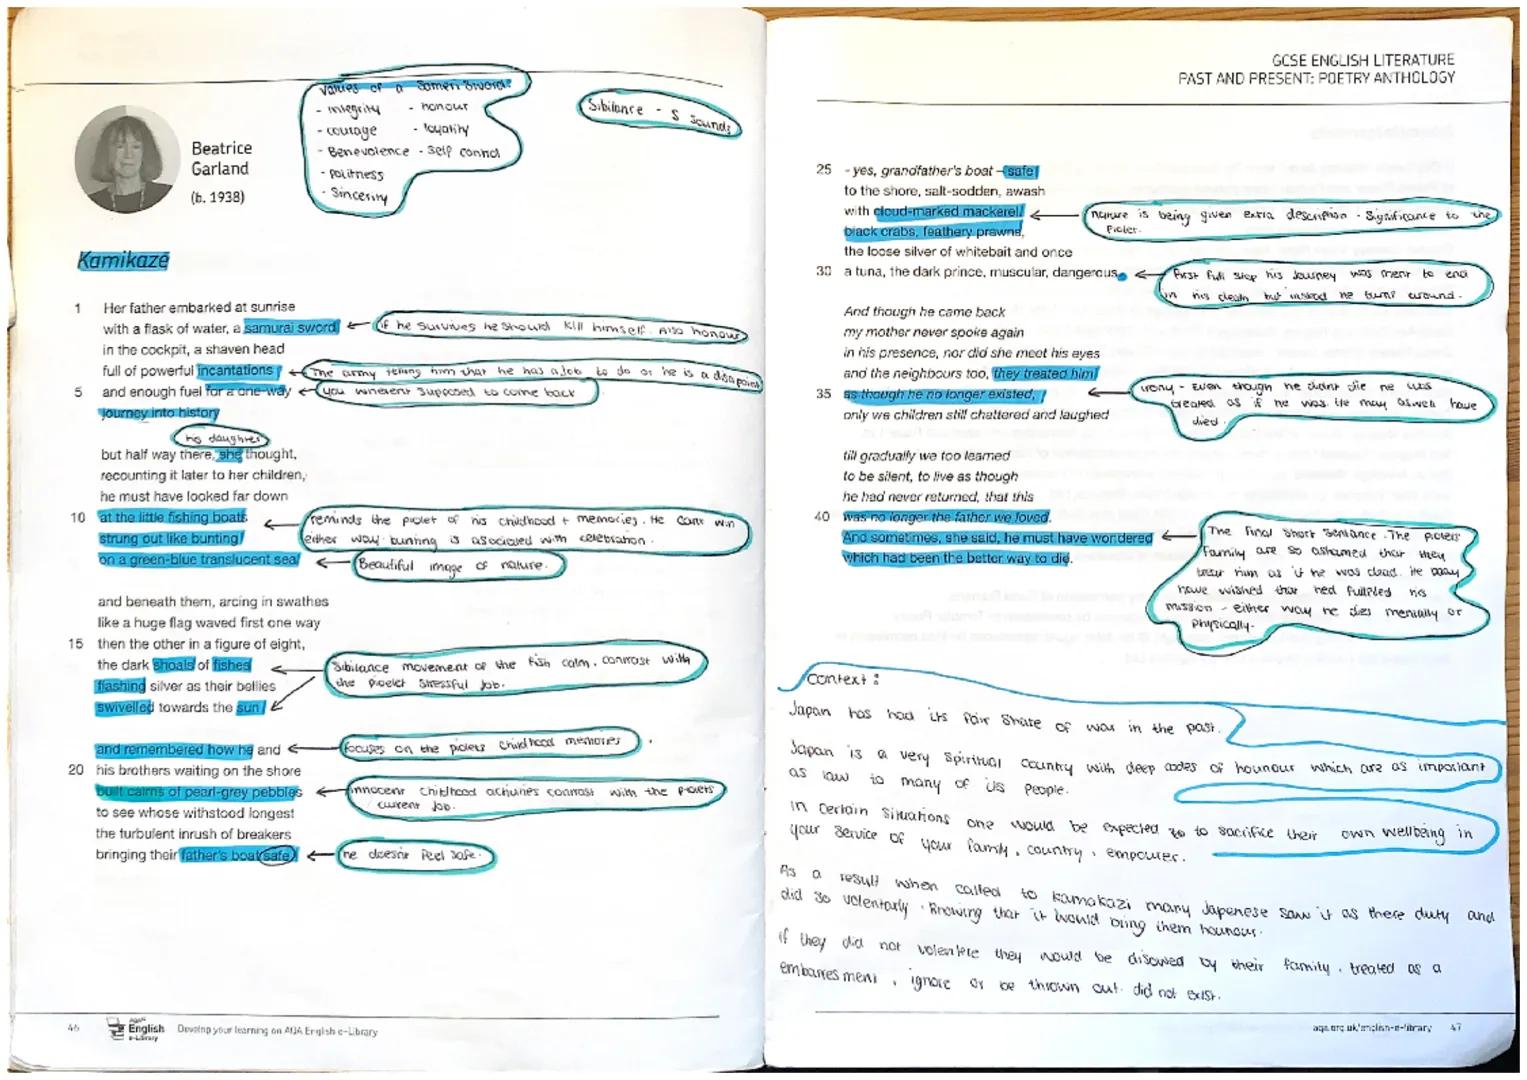 values of a Sameri Sword:
- integrity - honour
- courage - loyality
- Benevolence - self control
- politness
- Sincerity
Sibilance - S Sounds
Beatrice
Garland
(b. 1938)
Kamikaze
1 Her father embarked at sunrise
with a flask of water, a samurai sword
if he survives he should kill himself. Also honour
in the cockpit, a shaven head
full of powerful incantations
The army telling him that he has a job to do or he is a disapoint
5 and enough fuel for a one-way
you wherent supposed to come back
journey into history
his daughter
but half way there, she thought,
recounting it later to her children,
he must have looked far down
10 at the little fishing boats
strung out like bunting
on a green-blue translucent sea
reminds the piolet of his childhood + memories. He cant win
either way. bunting is asociated with celebration.
Beautiful image of nature.
and beneath them, arcing in swathes
like a huge flag waved first one way
15 then the other in a figure of eight,
the dark shoals of fishes
flashing silver as their bellies
swivelled towards the sun
Sibilance movement of the fish calm. contrast with
the piolet stressful job.
and remembered how he and
focuses on the piolets childhood memories
20 his brothers waiting on the shore
built cairns of pearl-grey pebbles
innocent childhood activities contrast with the piolets
current job.
to see whose withstood longest
the turbulent inrush of breakers
bringing their father's boat safe
he doesnt feel safe.
46
AQA
English
e-Library
Develop your learning on AQA English e-Library
GCSE ENGLISH LITERATURE
PAST AND PRESENT: POETRY ANTHOLOGY
25 - yes, grandfather's boat – safe
to the shore, salt-sodden, awash
with cloud-marked mackerel,
black crabs, feathery prawns,
nature is being given extra description. Significance to the
Pioler.
the loose silver of whitebait and once
30 a tuna, the dark prince, muscular, dangerous.
first full stop his journey was ment to end
in his death but instead he turnt around.
And though he came back
my mother never spoke again
in his presence, nor did she meet his eyes
and the neighbours too, they treated him
35 as though he no longer existed,
irony - even though he didnt die he was
treated as if he was. He may aswell have
died.
only we children still chattered and laughed
till gradually we too learned
to be silent, to live as though
he had never returned, that this
40 was no longer the father we loved.
And sometimes, she said, he must have wondered
which had been the better way to die.
The final short sentance. The piolets
family are so ashamed that they
treat him as if he was dead. He
have wished that hed fullfiled his
mission - either way he dies mentally or
physically.
Context:
Japan has had its fair share of war in the past.
Japan is a very spiritual country with deep codes of hounour which are as important
as law to many of its people.
in certain situations one would be expected to to sacrifice their own wellbeing in
your service of your family, country, empourer.
As a result when called to kamakazi many Japenese saw it as there duty and
did so volentarly. Knowing that it would bring them hounour.
if they did not volentere they would be disowed by their family. treated as a
embarresment, ignore or be thrown out. did not exist.
aqa.org.uk/english-e-library 47